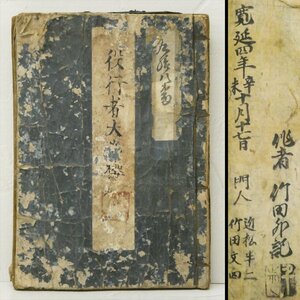 役行者大峯桜
寛延四年辛未十月十七日
作者 竹田外記
門人 近松半二
竹田文四